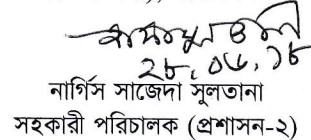 ২৮.০৬.১৮
নার্গিস সাজেদা সুলতানা
সহকারী পরিচালক (প্রশাসন-২)